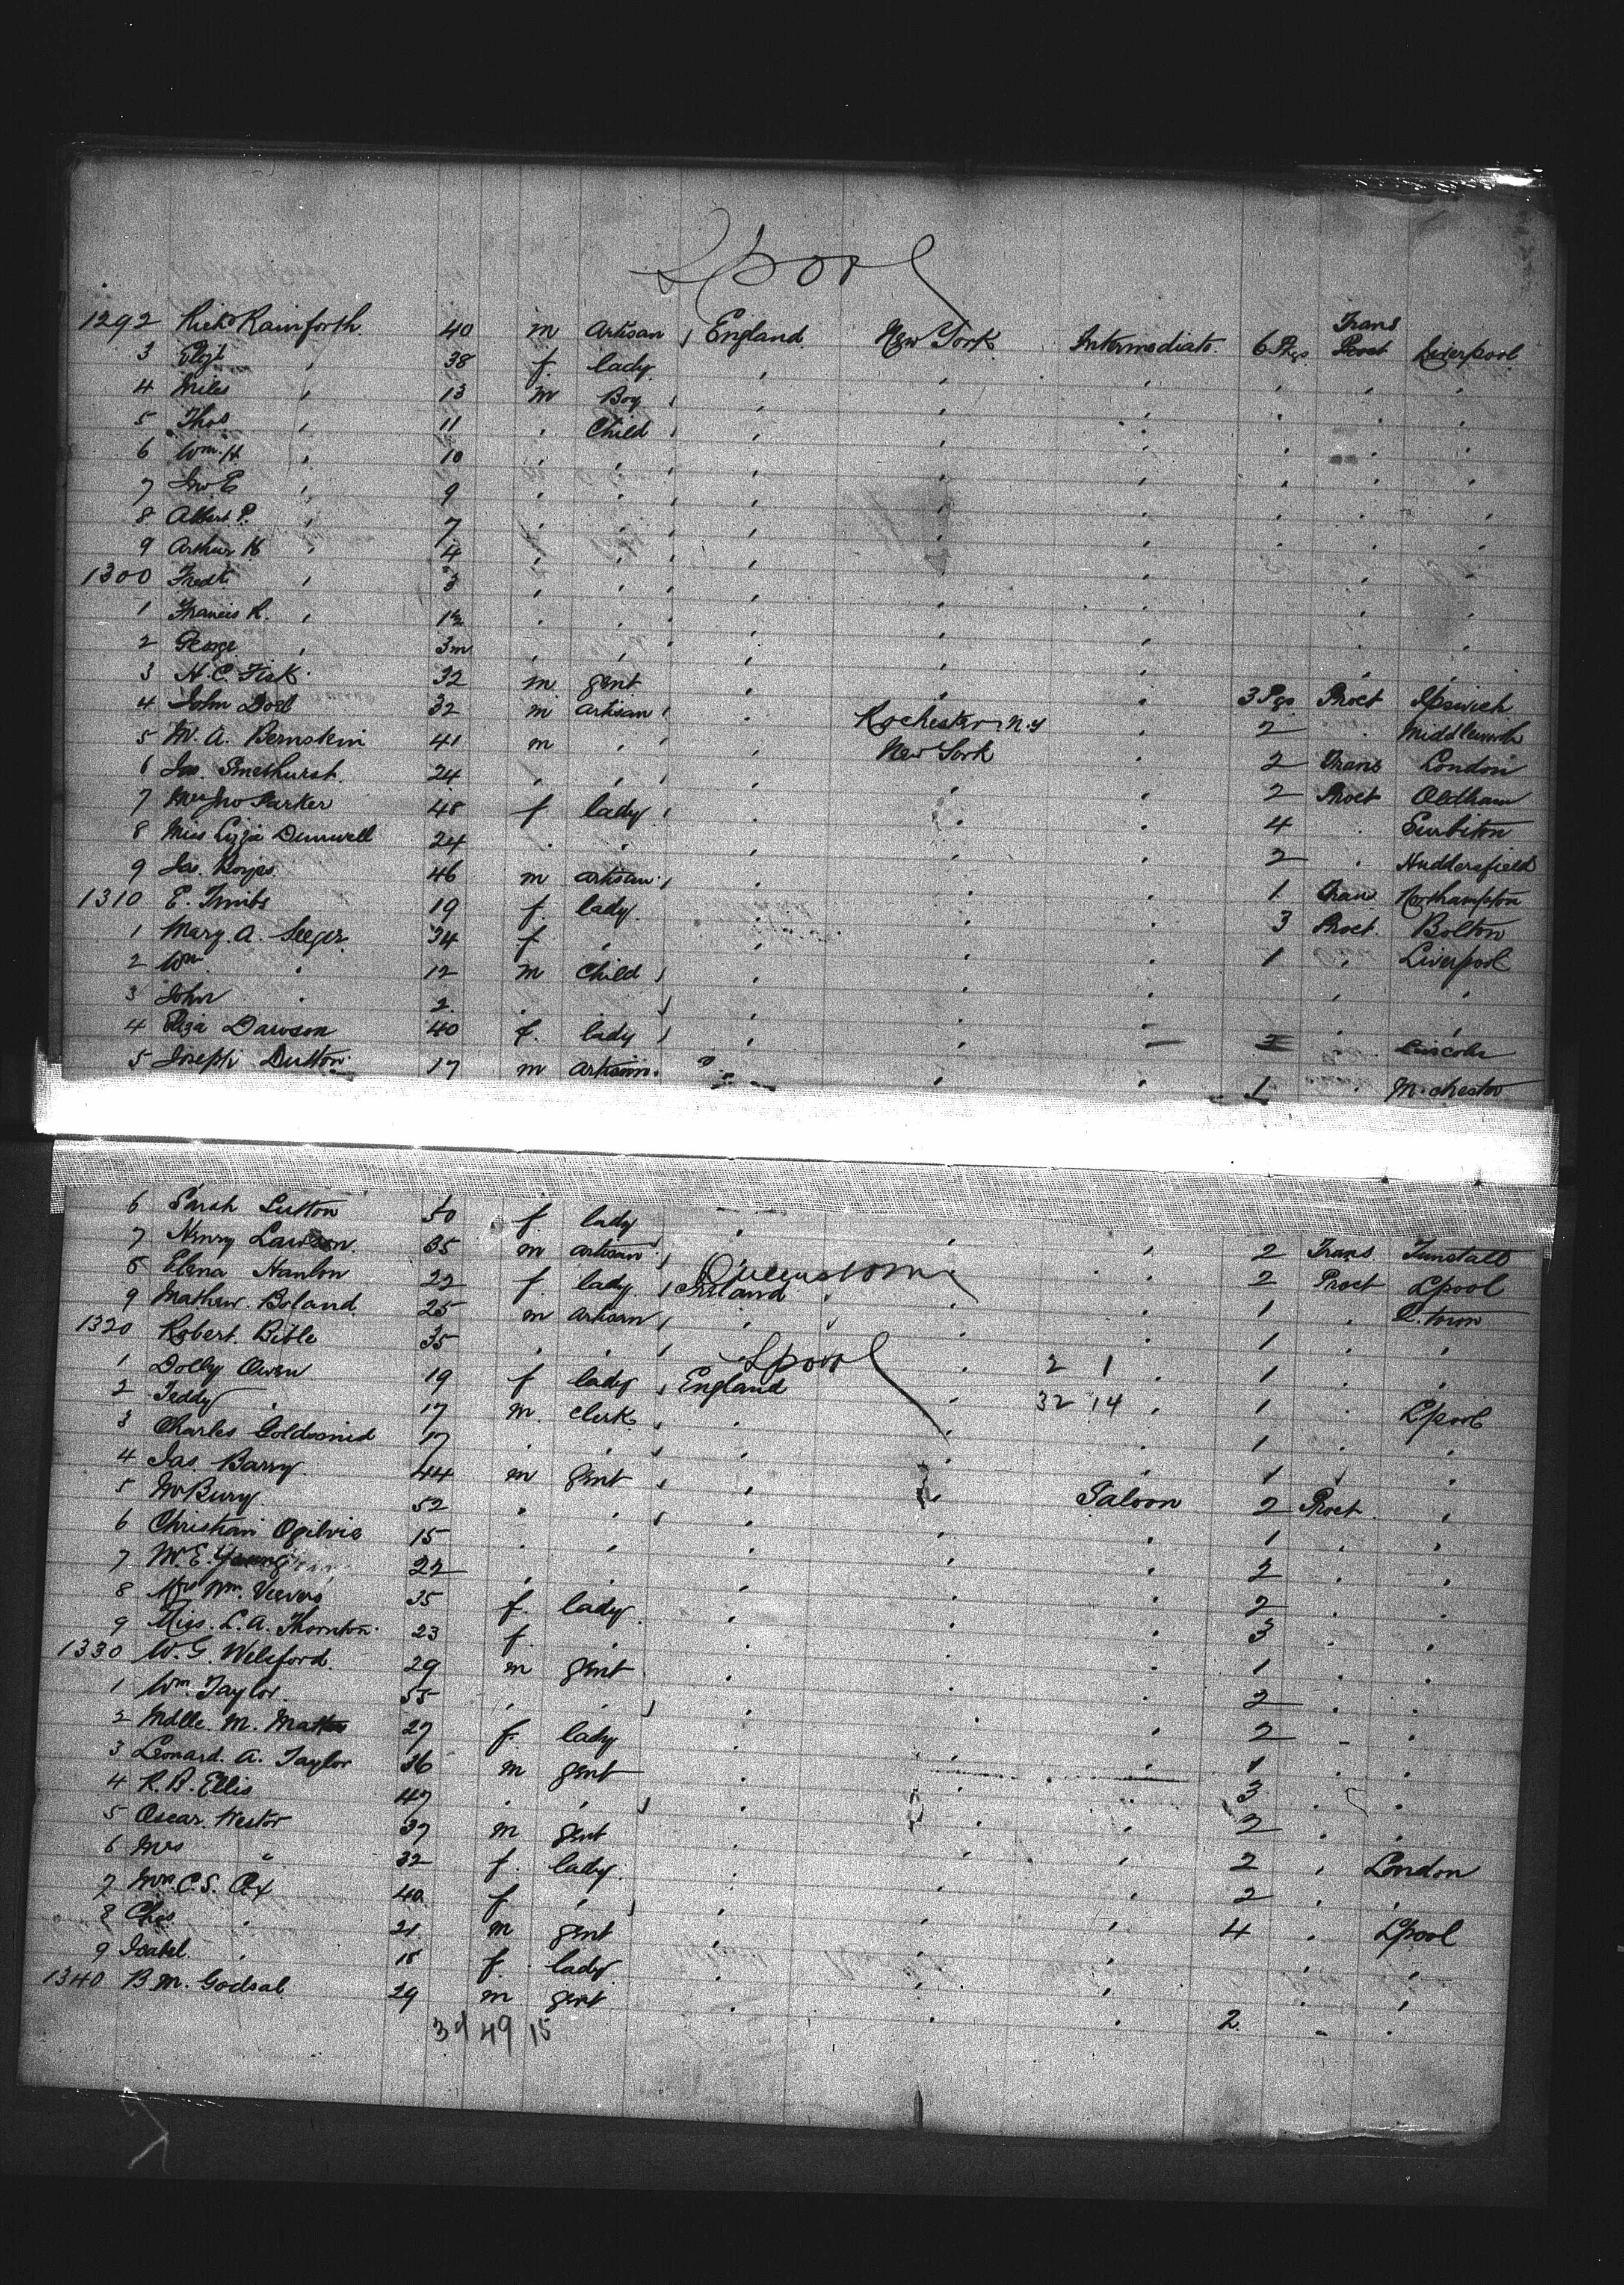 Lpool
1292 Richd Rainforth. 40 m Artisan England New York Intermediate. 6 Pkgs Trans Proct Liverpool
3 Elizt , 38 f. lady , , , , , ,
4 Miles , 13 m Boy , , , , , ,
5 Thos , 11 , Child , , , , , ,
6 Wm. H. , 10 , , , , , , , ,
7 Jno. E. , 9 , , , , , , , ,
8 Albert P. , 7 , , , , , , , ,
9 Arthur H , 4 , , , , , , , ,
1300 Fredk , 3 , , , , , , ,
1 Francis R. , 1½ , , , , , , ,
2 George , 3m , , , , , , ,
3 H. C. Fisk. 32 m gent , , , 3 Pgs Proct Ipswich
4 John 32 m artisan , Rochester N.Y , 2 , Middleworth
5 M. A. Bernstein 41 m , , New York , 2 Trans London
6 Jas. Smethurst. 24 , , , , , 2 Proct Oldham
7 Mrs Jno Parker 48 f. lady , , , 4 , Surbiton
8 Miss Lizzie Dunwell 24 , , , , , 2 , Huddersfield
9 Jas. 46 m artisan , , , 1 Trans Northampton
1310 E. Timbs 19 f. lady , , , 3 Proct. Bolton
1 Mary. A. Seeger 34 f. , , , , 1 , Liverpool
2 Wm , 12 m Child , , , , ,
3 John , 2 , , , , , ,
4 Eliza Dawson 40 f. lady , , — , Lincoln
5 Joseph Dutton 17 m artisan , , , 1 , M.chester
6 Sarah Sutton 50 f. lady , , , 2 Trans Tunstall
7 Henry Lawson. 35 m artisan , , , 2 Proct Lpool
Queenstown
8 Elena Hanlon 22 f. lady Ireland , , 1 , Q.town
9 Mathew. Boland 25 m artisan , , , 1 , ,
1320 Robert. Bible 35 , , , , 2 1 , 1 , ,
Lpool
1 Dolly Owen 19 f lady England , 32 14 , 1 , Lpool
2 Teddy , 17 m. Clerk , , , 1 , ,
3 Charles Goldsmid 17 , , , , , 1 , ,
4 Jas. Barry. 44 m gent , , Saloon 2 Proct ,
5 52 , , , , , 1 , ,
6 Christian Ogilvie 15 , , , , , 2 , ,
7 M. E. Young 22 , , , , , 2 , ,
8 Mrs Wm. Veevers 35 f. lady , , , 3 , ,
9 Miss. L. A. Thornton. 23 f. , , , , 1 , ,
1330 W. G. Welsford. 29 m gent , , , 2 , ,
1 Wm. Taylor. 55 , , , , , 2 , ,
2 Mdlle. M. 27 f. lady , , , 1 , ,
3 Leonard. A. Taylor 36 m gent , , , 3 , ,
4 R. B. Ellis 47 , , , , , 2 , ,
5 Oscar. Nestor 37 m gent , , , 2 , London
6 Mrs " 32 f. lady , , , 2 , ,
7 Mrs. C. S. 40 f. , , , , 4 , Lpool
8 Chas , 21 m gent , , , , ,
9 Isabel , 18 f. lady , , , , ,
1340 B. M. Godsal 29 m gent , , , 2. - ,
49 15